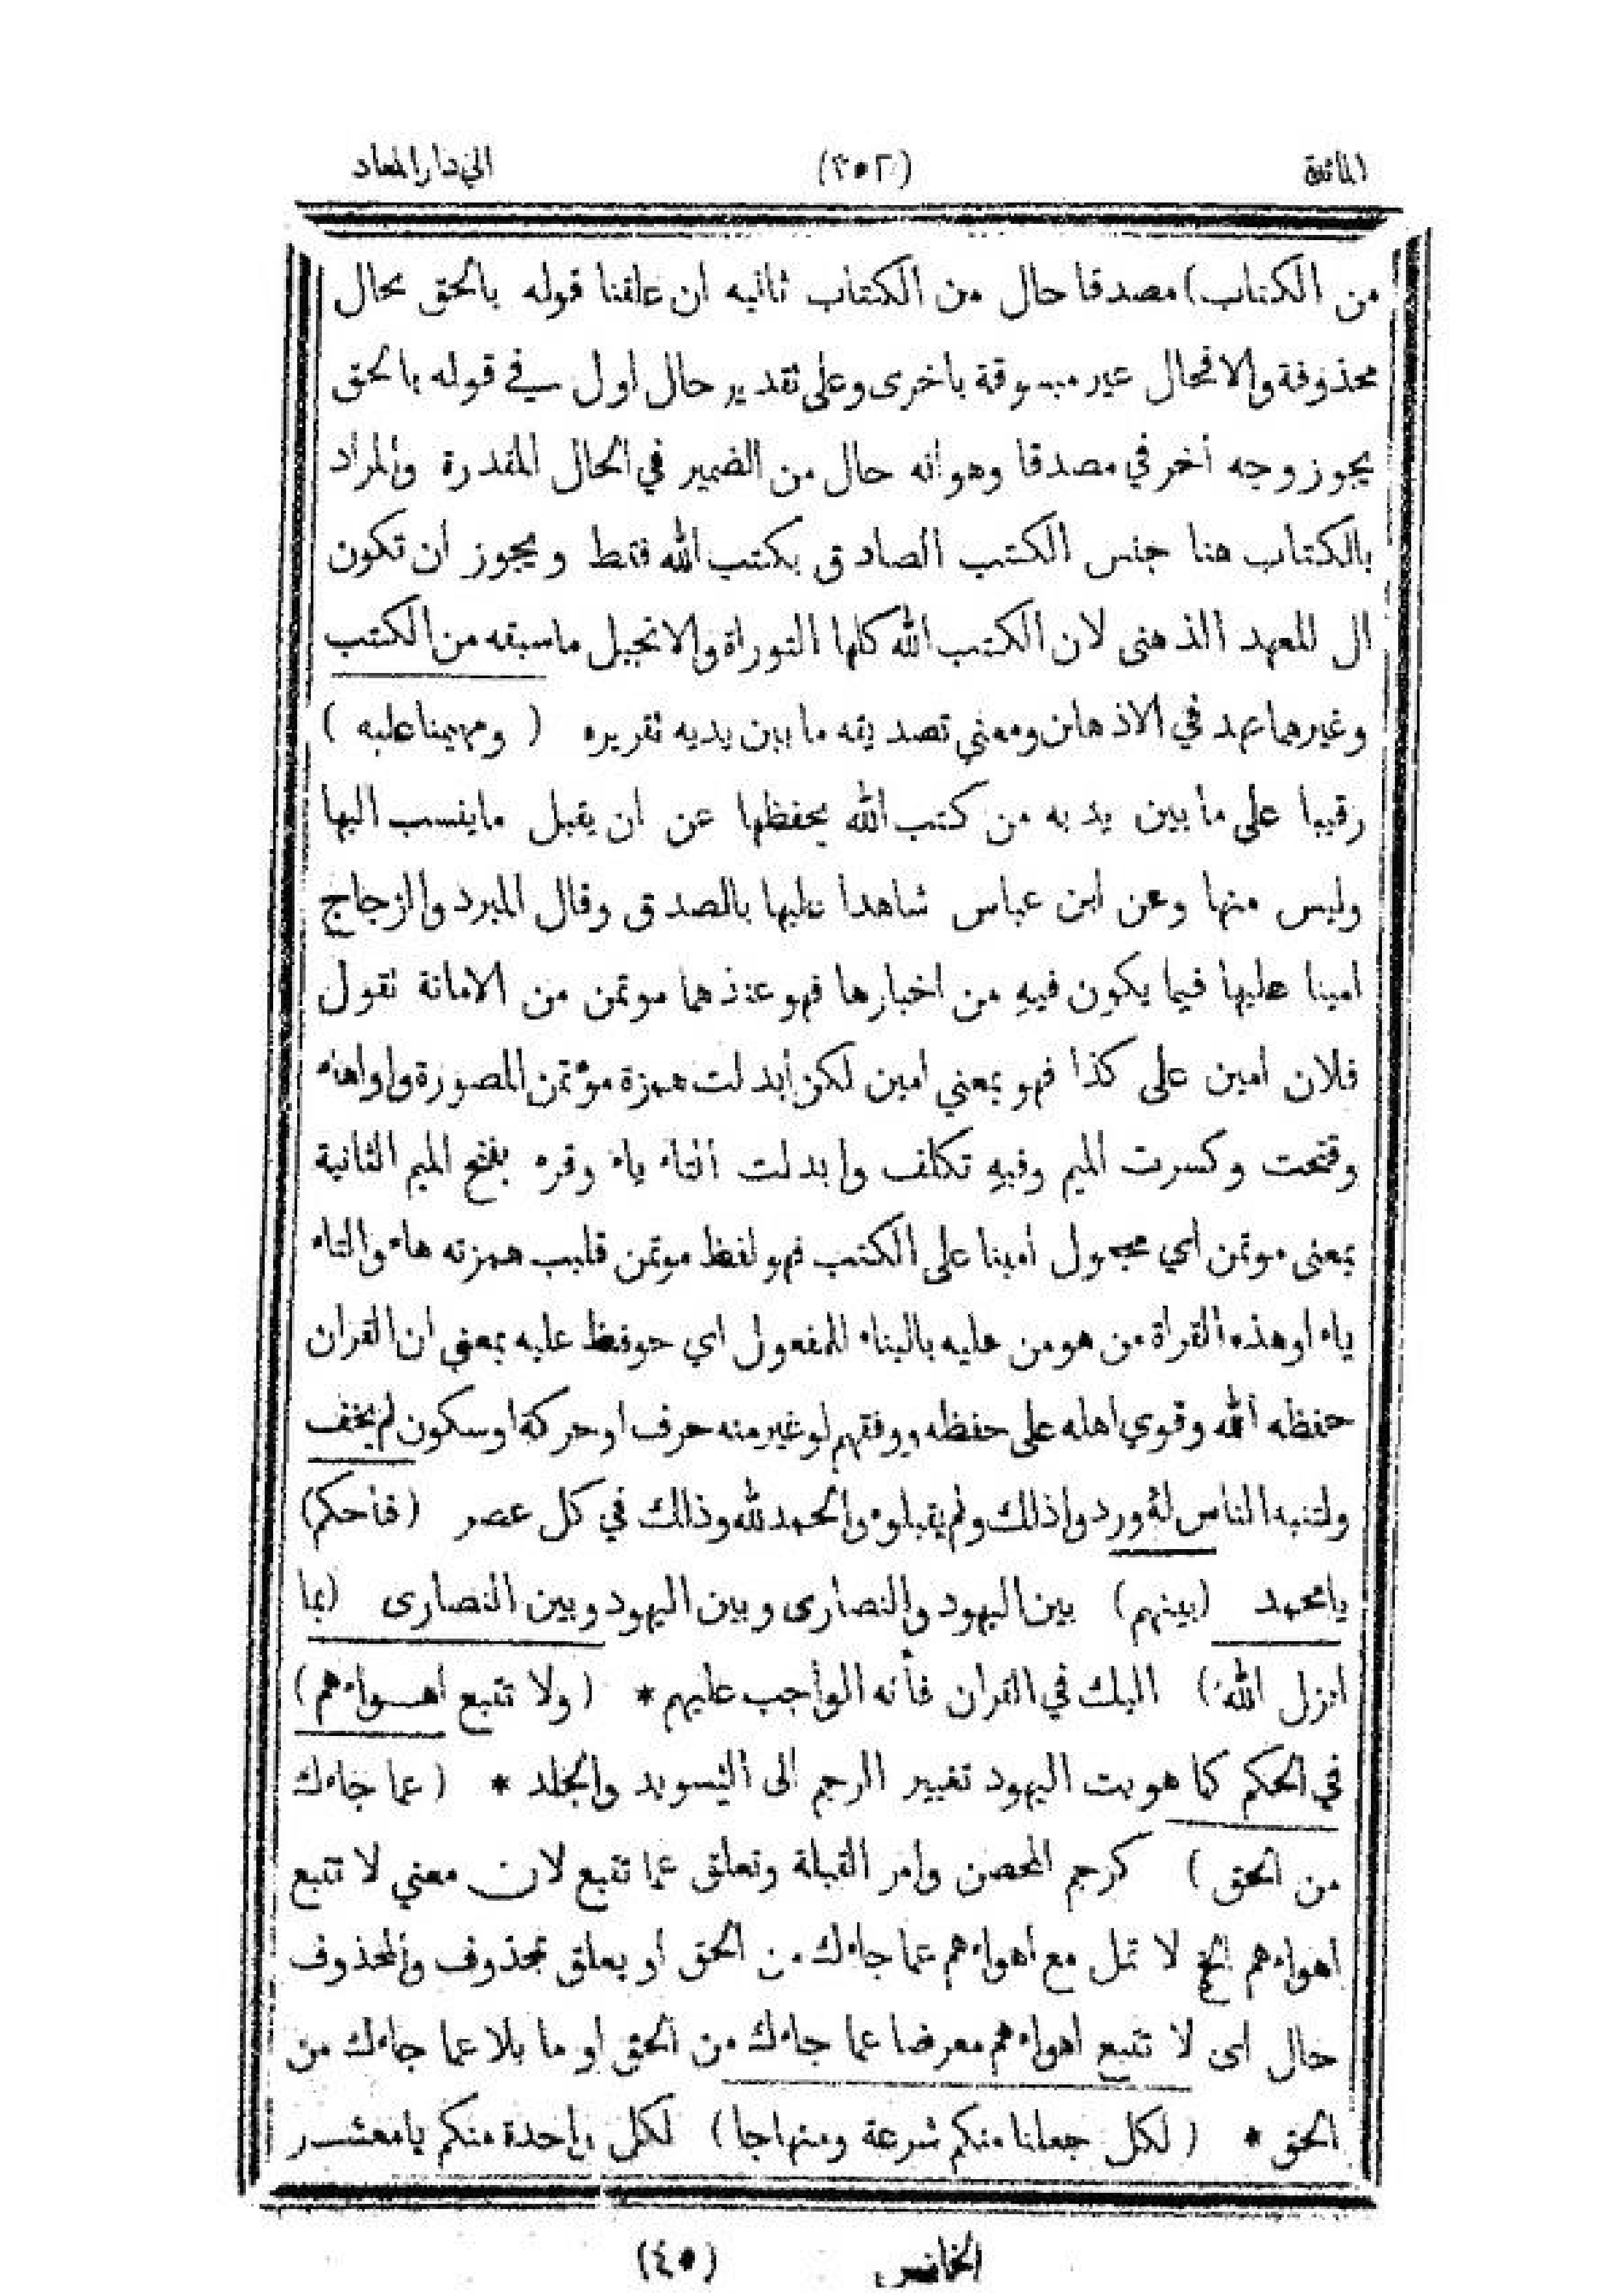 المائدة (٣٥٢) الى دار المعاد
من الكتاب) مصدقا حال من الكتاب ثانيه ان علقنا قوله بالحق بحال
محذوفة والا فحال غير مسبوقة باخرى وعلى تقدير حال اول في قوله بالحق
يجوز وجه أخر في مصدقا وهو انه حال من الضمير في الحال المقدرة والمراد
بالكتاب هنا جنس الكتب الصادق بكتب الله فقط ويجوز ان تكون
ال للعهد الذهنى لان الكتب الله كلها التوراة والانجيل ماسبقه من الكتب
وغيرهما عهد في الاذهان ومعني تصديقه ما بين يديه تقريره ( ومهيمنا عليه )
رقيبا على ما بين يديه من كتب الله يحفظها عن ان يقبل ماينسب اليها
وليس منها وعن ابن عباس شاهدا عليها بالصدق وقال المبرد والزجاج
امينا عليها فيما يكون فيه من اخبارها فهو عندهما موتمن من الامانة تقول
فلان امين على كذا فهو بمعني امين لكن أبدلت همزة مؤتمن المصورة واوا هاء
وفتحت وكسرت الميم وفيه تكلف وابدلت التاء ياء وقرء بفتح الميم الثانية
بمعنى موتمن اي مجعول أمينا على الكتب فهو لفظ موتمن قلبب همزته هاء والتاء
ياء او هذه القراة من هومن عليه بالبناء للمفعول اي حوفظ عليه بمعني ان القران
حفظه الله وقوي اهله على حفظه ووفقهم لو غير منه حرف او حركة او سكون لم يخف
ولتنبه الناس له وردوا ذلك ولم يقبلوه والحمد لله وذالك في كل عصر (فأحكم)
يا محمد (بينهم) بين اليهود والنصارى وبين اليهود وبين النصارى (بما
انزل الله) اليك في القران فأنه الواجب عليهم * (ولا تتبع اهـواءهم)
في الحكم كما هويت اليهود تغيير الرجم الى التسويد والجلد * (عما جاءك
من الحق) كرجم المحصن وامر القبلة وتعلق عما تتبع لان معني لا تتبع
اهواءهم الخ لا تمل مع اهواءهم عما جاءك من الحق او يعلق بمحذوف والمحذوف
حال اى لا تتبع اهواءهم معرضا عما جاءك من الحق او ما بلا عما جاءك من
الحق * (لكل جعلنا منكم شرعة ومنهاجا) لكل واحدة منكم يا معشـر
الخامس (٤٥)